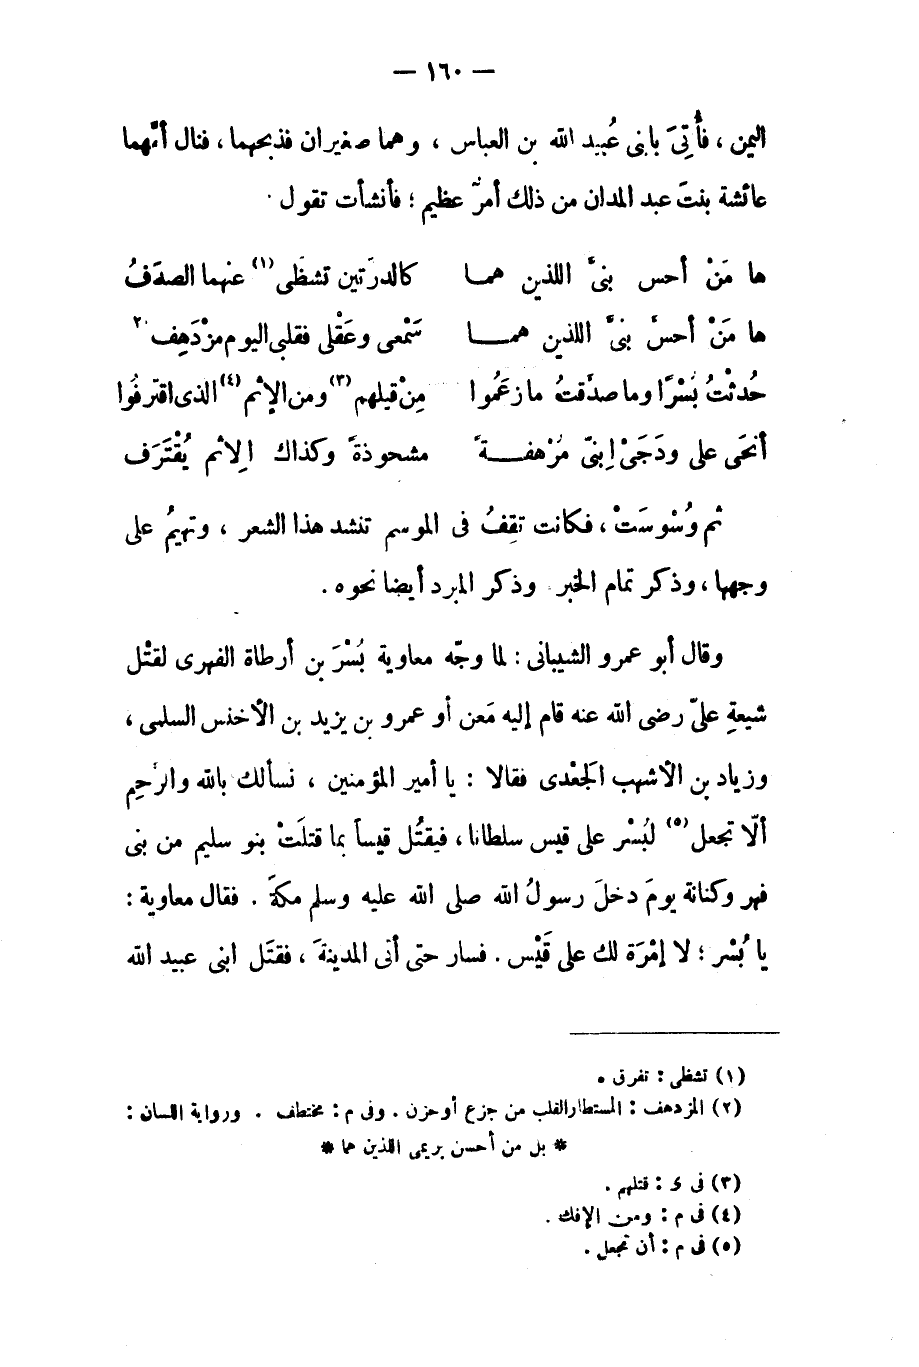 — ١٦٠ —
اليمن ، فأُتِىَ بابنى عُبيد الله بن العباس ، وهما صغيران فذبحهما ، فنال أمّهما
عائشة بنتَ عبد المدان من ذلك أمرٌ عظيم ؛ فأنشأت تقول .
ها مَنْ أحس بنىَّ اللذين همـا كالدرّتين تشظّى (١) عنهما الصدَفُ
ها مَنْ أحسَّ بنىَّ اللذين همـــا سَمْعى وعَقْلى فقلبى اليوم مزْدَهِف ٢
حُدثْتُ بُسْرًا وما صدَّقتُ ما زعَمُوا مِنْ قيلهم (٣) ومن الإثم (٤) الذى اقترفُوا
أنحَى على ودَجَىْ ابنىّ مُرْهفــةً مشحوذةً وكذاك الإثم يُقْتَرَف
ثم وُسْوسَتْ ، فكانت تقِفُ فى الموسم تنشد هذا الشعر ، وتهيمُ على
وجهها ، وذكر تمام الخبر وذكر المبرد أيضا نحوه .
وقال أبو عمرو الشيبانى : لما وجّه معاوية بُسْرَ بن أرطاة الفهرى لقتْل
شيعةِ علىّ رضى الله عنه قام إليه مَعن أو عمرو بن يزيد بن الأخنس السلمى ،
وزياد بن الأشهب الجَعْدى فقالا : يا أمير المؤمنين ، نسألك بالله والرَحِم
ألّا تجعل (٥) لبُسْر على قيس سلطانا ، فيقتُل قيساً بما قتلَتْ بنو سليم من بنى
فهر وكنانة يومَ دخلَ رسولُ الله صلى الله عليه وسلم مكةَ . فقال معاوية :
يا بُسْر ؛ لا إمْرَة لك على قَيْس . فسار حتى أتى المدينةَ ، فقتَل ابنى عبيد الله
(١) تشظى : تفرق .
(٢) المزدهف : المستطار القلب من جزع أو حزن . وفى م : مختطف . ورواية اللسان :
* بل من أحسن بريمى اللذين هما *
(٣) فى ى : قتلهم .
(٤) فى م : ومن الإفك .
(٥) فى م : أن تجعل .